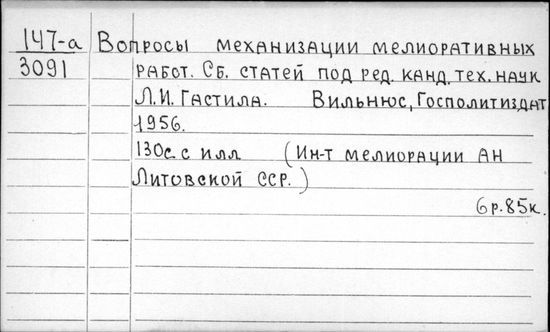 147-а Вопросы механизации мелиоративных
3091 работ. Сб. статей под ред. канд. тех. наук
Л.И. Гастила. Вильнюс, Госполитиздат
1956.
130с. с илл (Ин-т мелиорации АН
Литовской ССР.)
6р.85к.